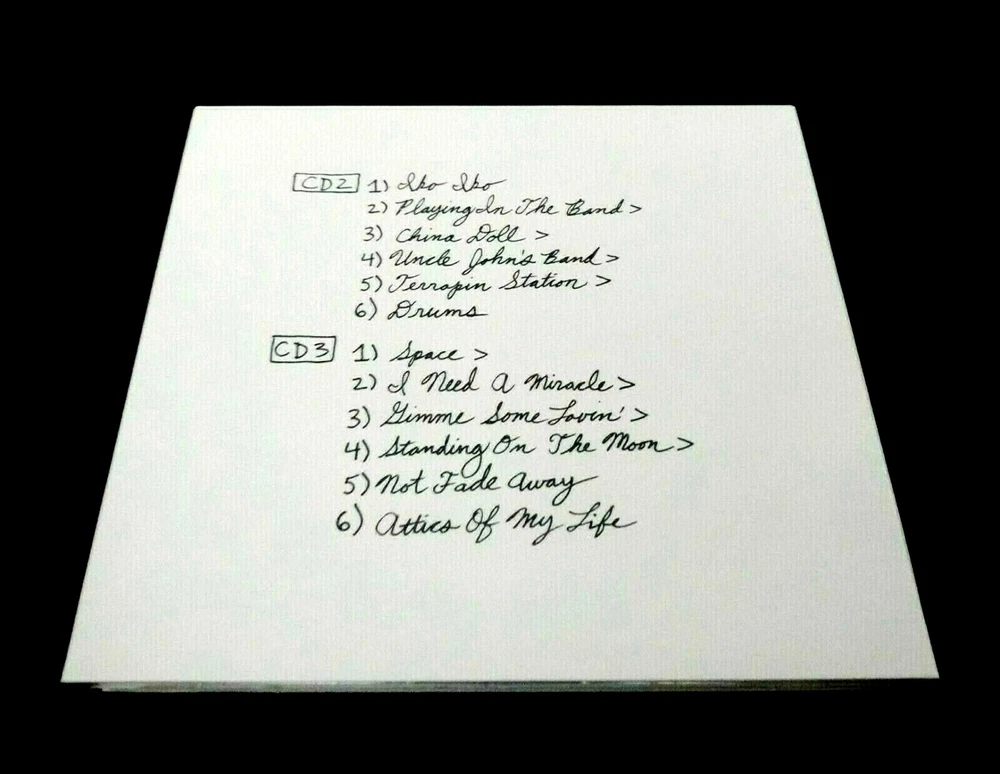 CD2 1) Iko Iko
2) Playing In The Band >
3) China Doll >
4) Uncle John's Band >
5) Terrapin Station >
6) Drums
CD3 1) Space >
2) I Need A Miracle >
3) Gimme Some Lovin' >
4) Standing On The Moon >
5) Not Fade Away
6) Attics Of My Life